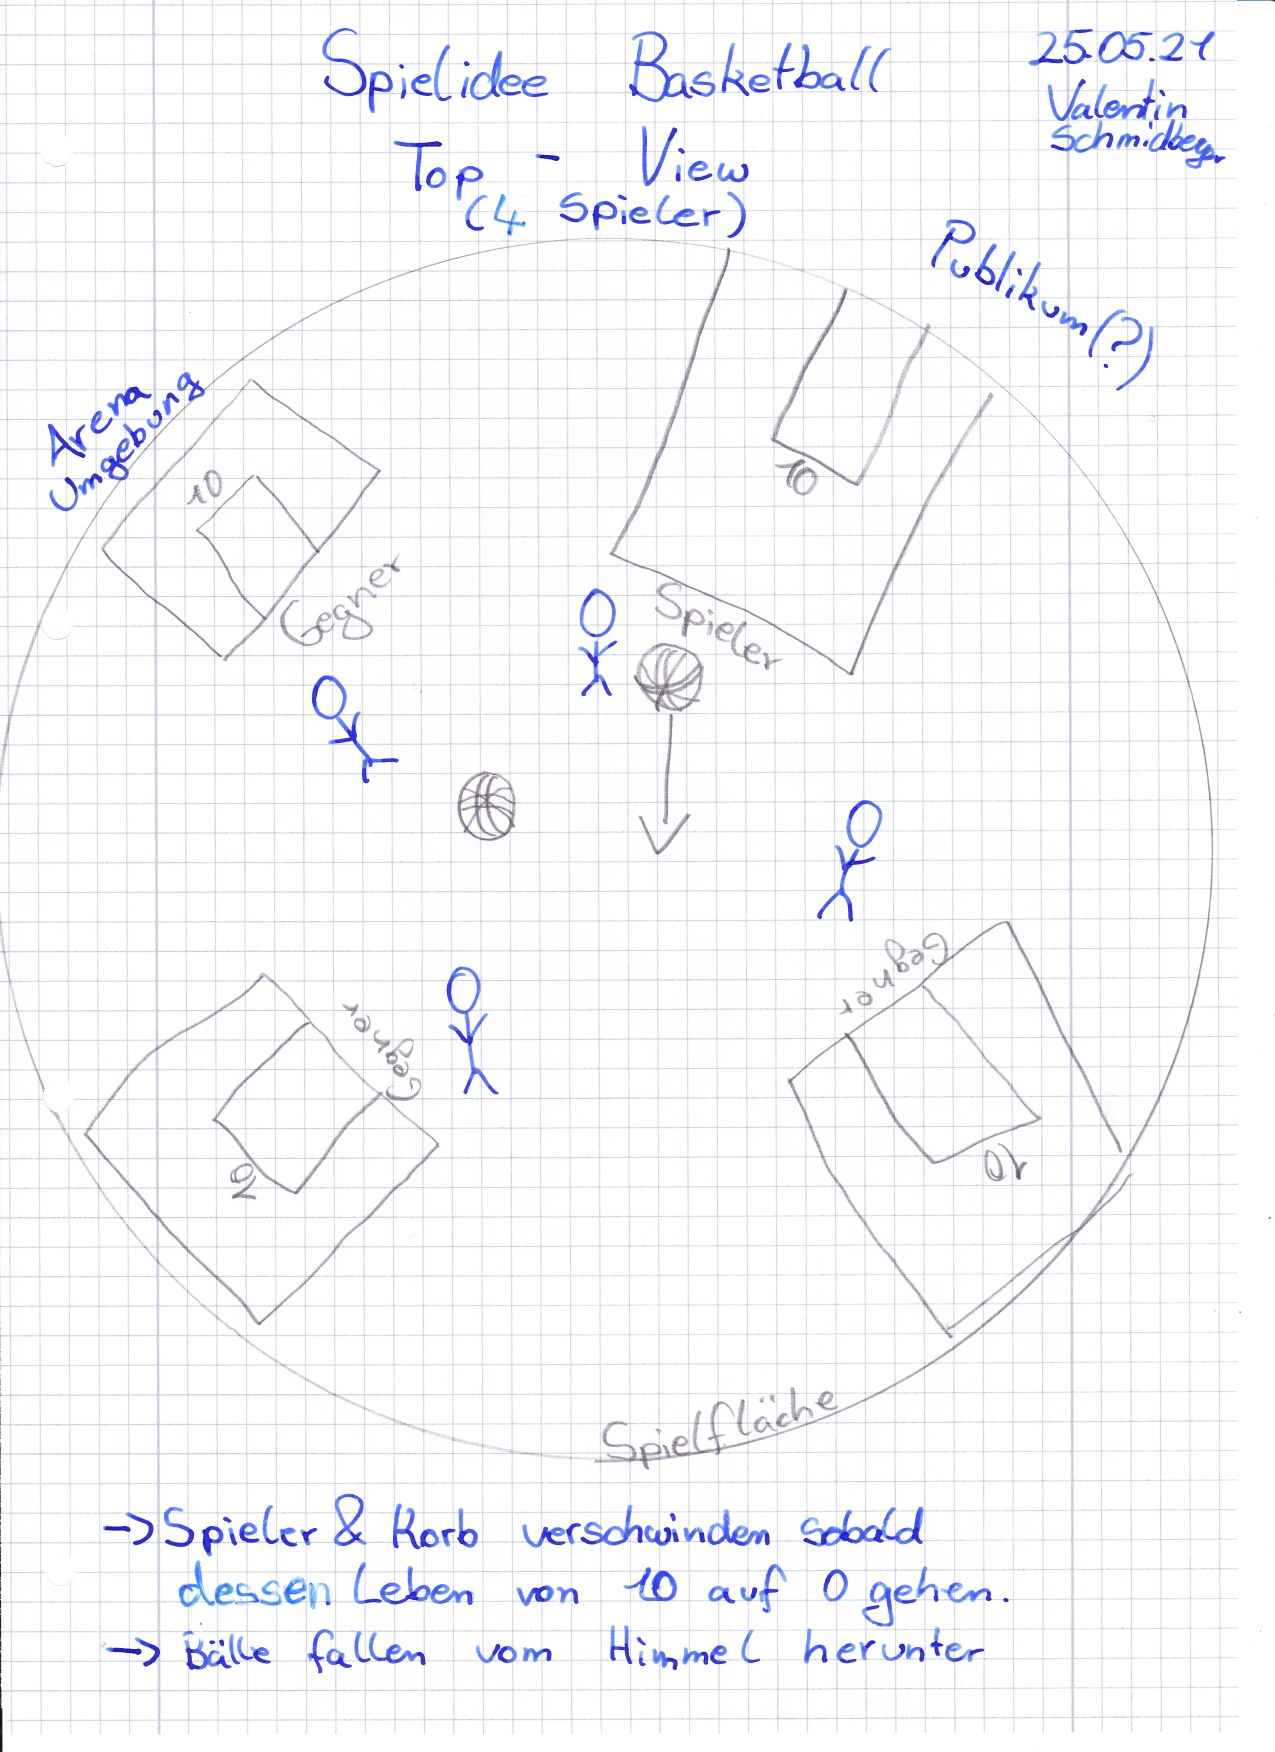 Spielidee Basketball
25.05.21
Valentin
Schmidberger
Top - View
(4 Spieler)
Publikum(?)
Arena
Umgebung
10
10
Gegner
Spieler
Gegner
Gegner
10
10
Spielfläche
-> Spieler & Korb verschwinden sobald
dessen Leben von 10 auf 0 gehen.
-> Bälle fallen vom Himmel herunter